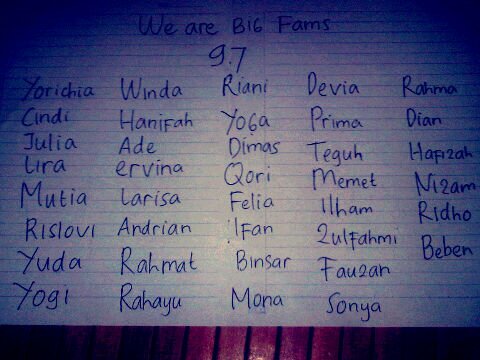 We are BIG Fams
9.7
Yorichia Winda Riani Devia Rahma
Cindi Hanifah Yoga Prima Dian
Julia Ade Dimas Teguh Hafizah
Lira ervina Qori Memet Nizam
Mutia Larisa Felia Ilham Ridho
Rislovi Andrian Ifan Zulfahmi Beben
Yuda Rahmat Binsar Fauzan
Yogi Rahayu Mona Sonya